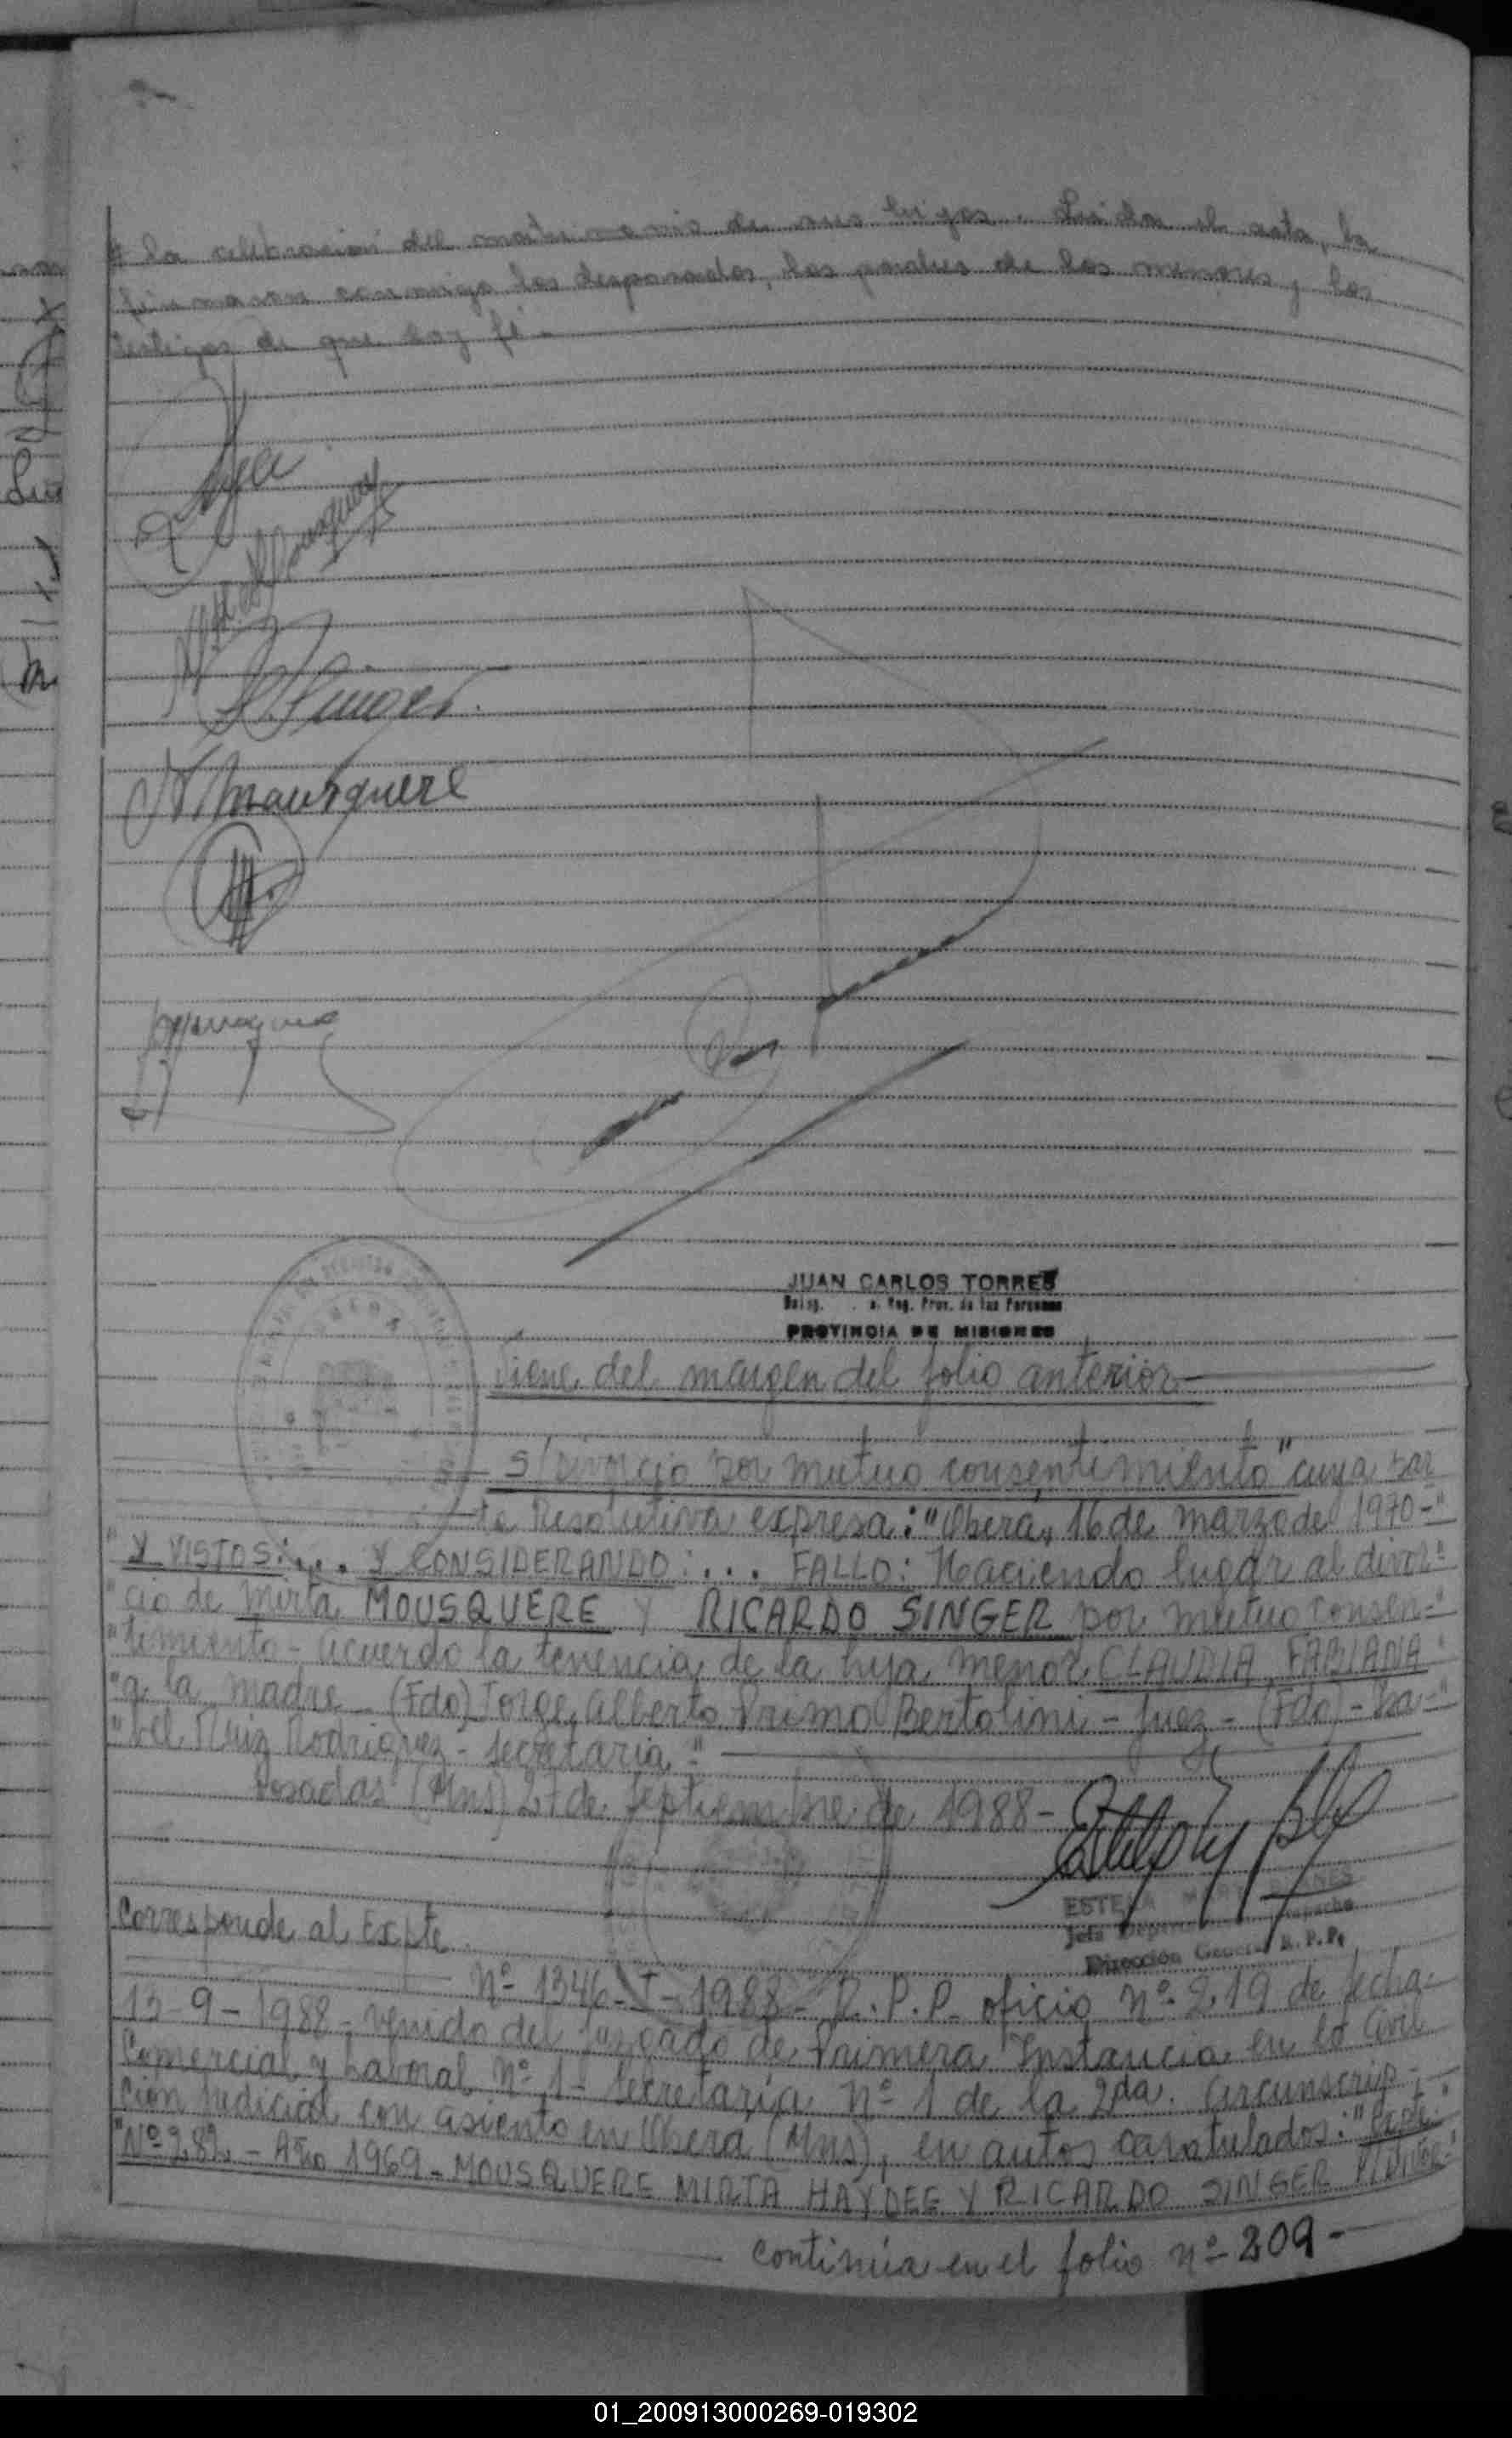 a la celebracion del matrimonio de sus hijos. Leida el acta, la
firmaron conmigo los desposados, los padres de los menores y los
testigos de que doy fé -
Singer
N Mousquere
JUAN CARLOS TORRES
Reg. Prov. de las Personas
PROVINCIA DE MISIONES
viene del margen del folio anterior-
s/Divorcio por mutuo consentimiento" cuya par
te Resolutiva expresa: "Obera, 16 de marzo de 1970-"
"Y VISTOS:... Y CONSIDERANDO:... FALLO: Haciendo lugar al divor-"
"cio de Mirta MOUSQUERE Y RICARDO SINGER por mutuo consen-"
"timiento- acuerdo la tenencia de la hija menor CLAUDIA FABIANA"
"a la madre - (Fdo) Jorge Alberto Primo Bertolini - Juez - (Fdo) - Isa-"
"bel Ruiz Rodriguez - Secretaria -"
Posadas (Mns) 27 de Septiembre de 1988-
ESTELA
Jefa Despacho
Dirección General R.P.P.
Corresponde al Expte
Nº 1346-I-1988- R.P.P- oficio Nº 219 de fecha
13-9-1988- venido del Juzgado de Primera Instancia en lo Civil
Comercial y Laboral Nº 1- Secretaría Nº 1 de la 2da. Circunscrip-
cion Judicial con asiento en Obera (Mns), en autos caratulados: "Expte.
"Nº 282 - Año 1969 - MOUSQUERE MIRTA HAYDEE Y RICARDO SINGER
- Continúa en el folio nº 209 -
01_200913000269-019302